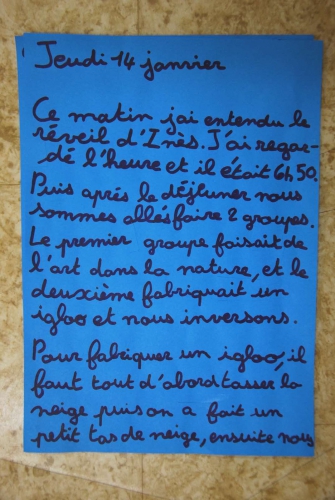 Jeudi 14 janvier
Ce matin j'ai entendu le
réveil d'Inès. J'ai regar-
dé l'heure et il était 6h50.
Puis après le déjeuner nous
sommes allés faire 2 groupes.
Le premier groupe faisait de
l'art dans la nature, et le
deuxième fabriquait un
igloo et nous inversons.
Pour fabriquer un igloo, il
faut tout d'abord tasser la
neige puis on a fait un
petit tas de neige, ensuite nous